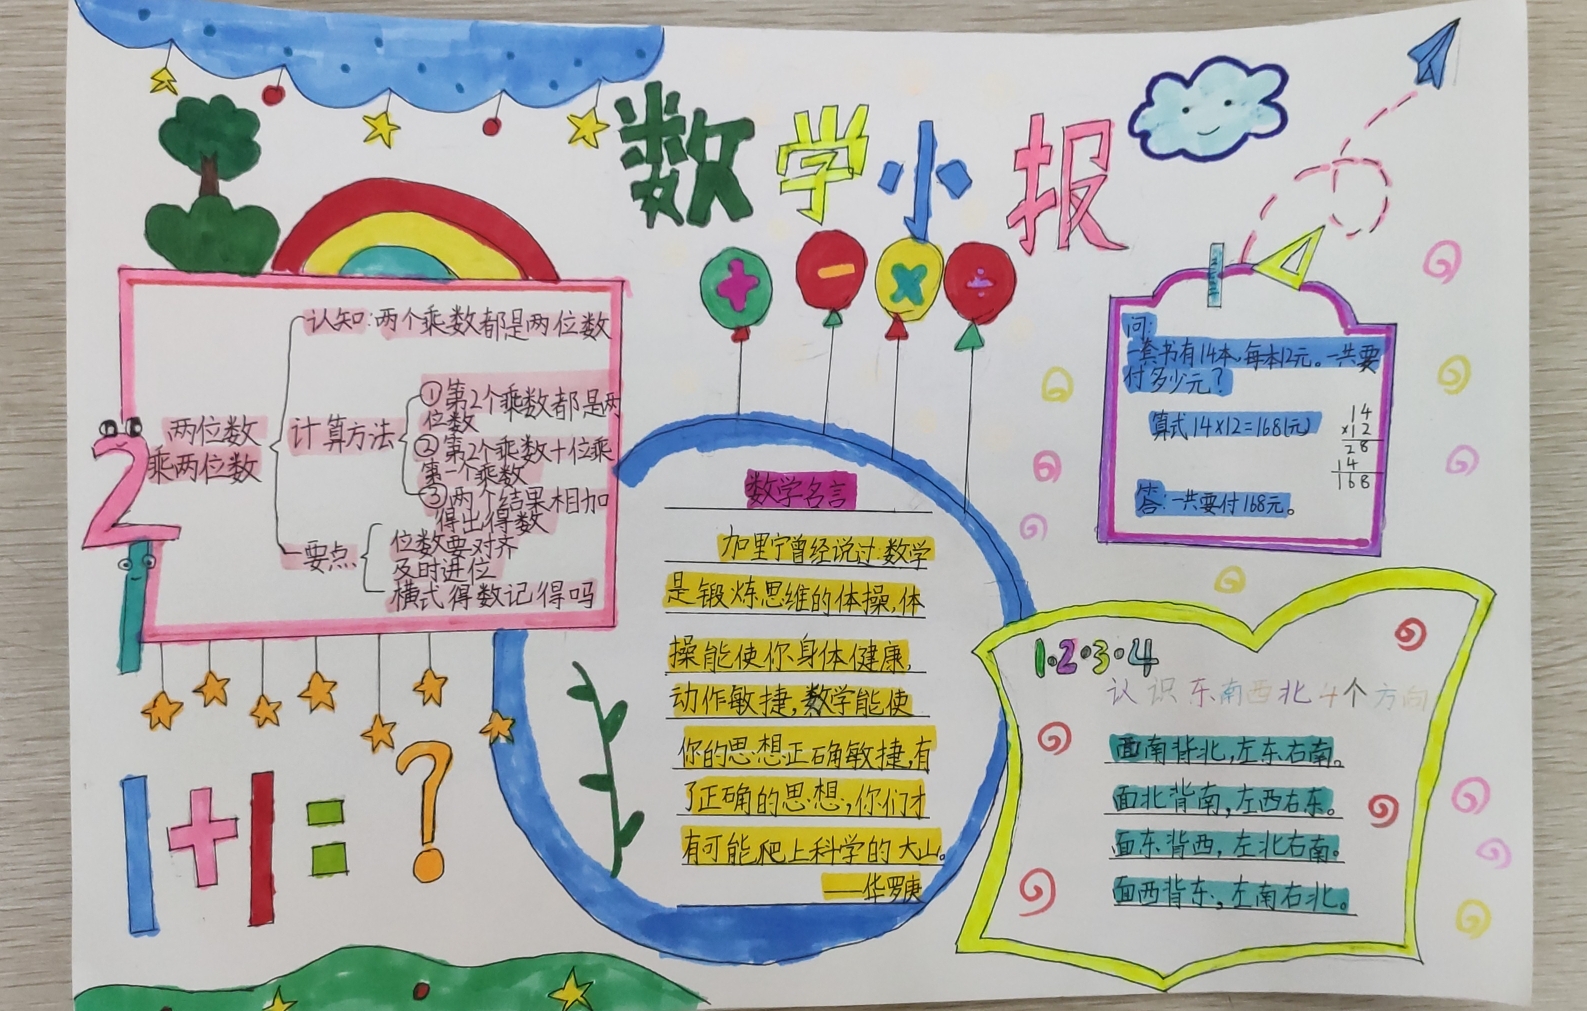 数学小报
+ - × ÷
两位数
乘两位数
认知:两个乘数都是两位数
计算方法
①第2个乘数都是两
位数
②第2个乘数十位乘
第一个乘数
③两个结果相加
得出得数
要点
位数要对齐
及时进位
横式得数记得吗
2
1+1=?
数学名言
加里宁曾经说过:数学
是锻炼思维的体操,体
操能使你身体健康,
动作敏捷,数学能使
你的思想正确敏捷,有
了正确的思想,你们才
有可能爬上科学的大山。
——华罗庚
问:
一套书有14本,每本12元。一共要
付多少元?
算式14×12=168(元)
14
×12
28
14
168
答:一共要付168元。
1·2·3·4
认识东南西北4个方向
面南背北,左东右南。
面北背南,左西右东。
面东背西,左北右南。
面西背东,左南右北。